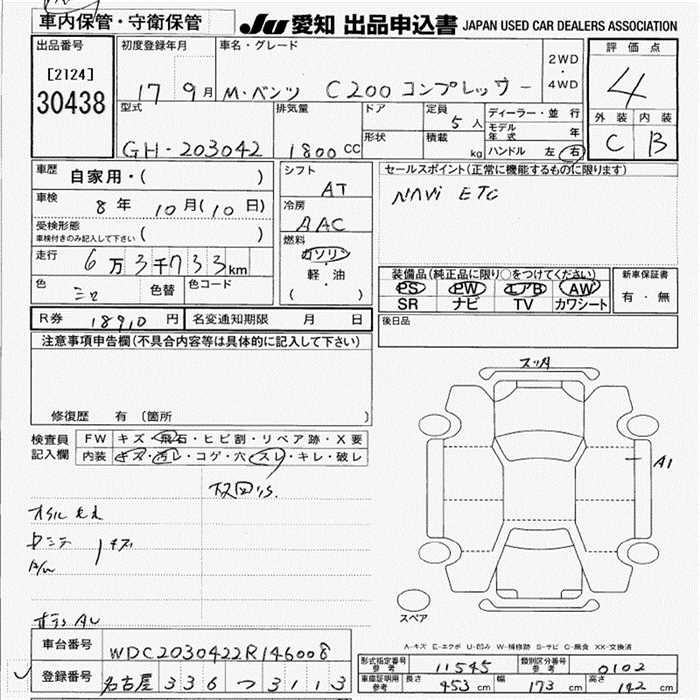 車内保管・守衛保管
JU 愛知 出品申込書 JAPAN USED CAR DEALERS ASSOCIATION
出品番号
[2124]
30438
初度登録年月
17 9月
車名・グレード
M・ベンツ C200 コンプレッサー
2WD
・
4WD
評価点
4
外装 内装
C B
型式
GH-203042
排気量
1800 CC
ドア
形状
定員
5 人
積載
kg
ディーラー・並行
モデル年式 年
ハンドル 左 右
車歴 自家用・( )
車検 8年 10月(10日)
受検形態
車検付きのみ記入して下さい ( )
走行 6万3千733km
色 色替 色コード
シフト
AT
冷房
AAC
燃料
ガソリン
・
軽・油
( )
セールスポイント(正常に機能するものに限ります)
NAVi ETC
装備品(純正品に限り○をつけてください)
PS PW エアB AW
SR ナビ TV カワシート
新車保証書
有・無
R券 18910円 名変通知期限 月 日
後日品
注意事項申告欄(不具合内容等は具体的に記入して下さい)
修復歴 有 〔箇所 〕
検査員
記入欄
FW キズ・飛石・ヒビ割・リペア跡・X要
内装 キズ・汚レ・コゲ・穴・スレ・キレ・破レ
A1
スペア
A-キズ E-エクボ U-凹み W-補修跡 S-サビ C-腐食 XX-交換済
車台番号 WDC2030422R146008
登録番号 名古屋 336 つ 3113
形式指定番号
参考 11545
類別区分番号
参考 0102
車庫証明用
参考 長さ 453 cm 幅 173 cm 高さ 142 cm